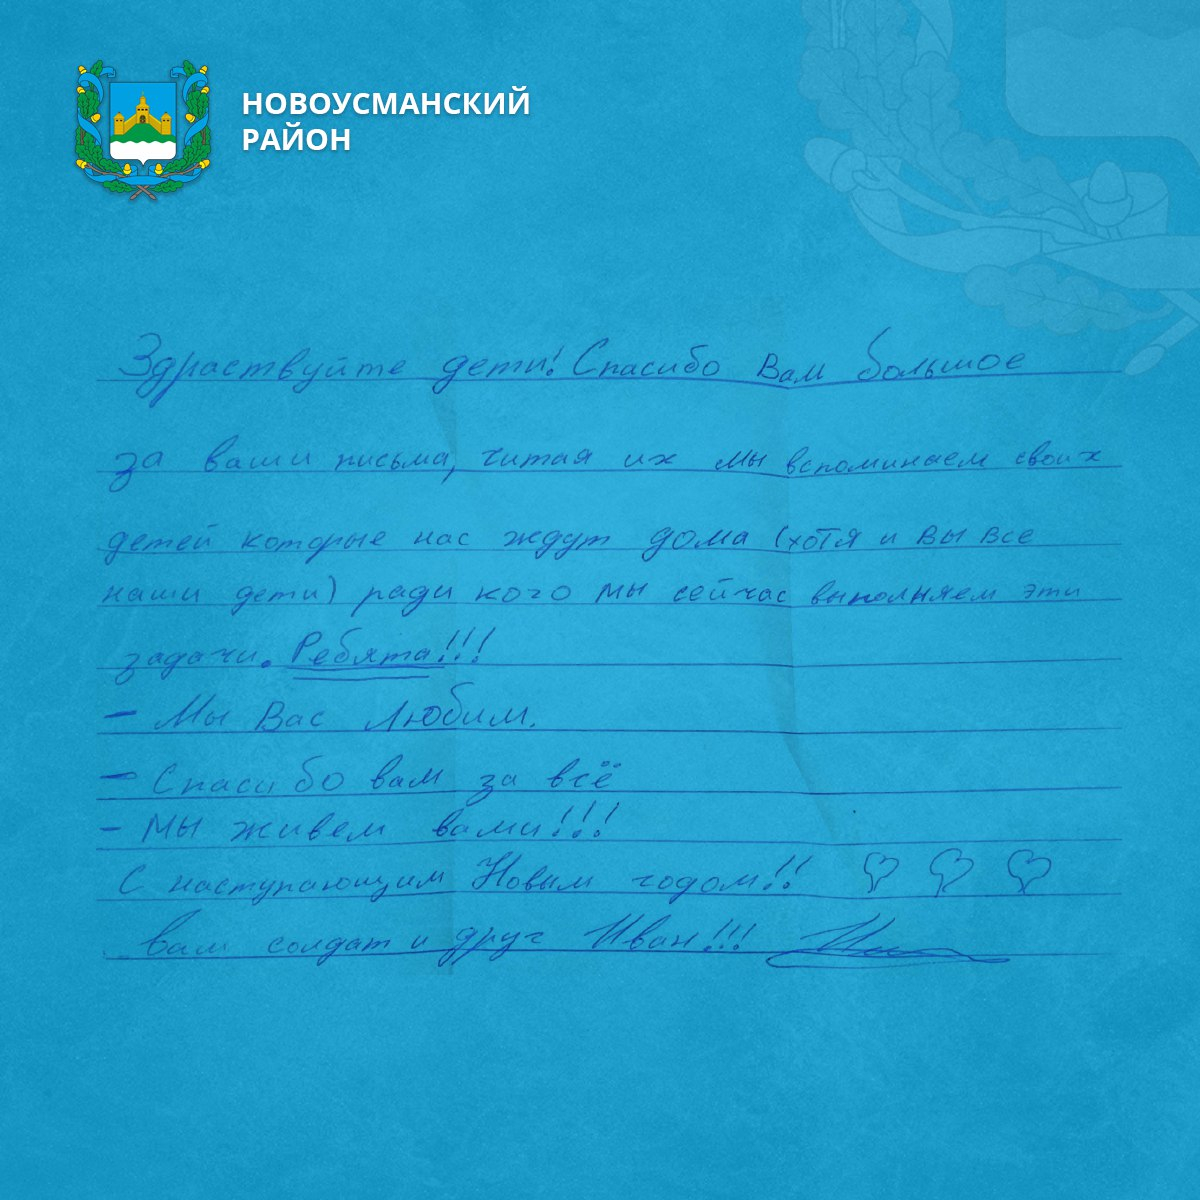 НОВОУСМАНСКИЙ
РАЙОН
Здраствуйте дети! Спасибо Вам большое
за ваши письма, читая их мы вспоминаем своих
детей которые нас ждут дома (хотя и вы все
наши дети) ради кого мы сейчас выполняем эти
задачи. Ребята!!!
- Мы Вас любим.
- Спасибо вам за всё
- мы живем вами!!!
С наступающим Новым годом!!
вам солдат и друг Иван!!!